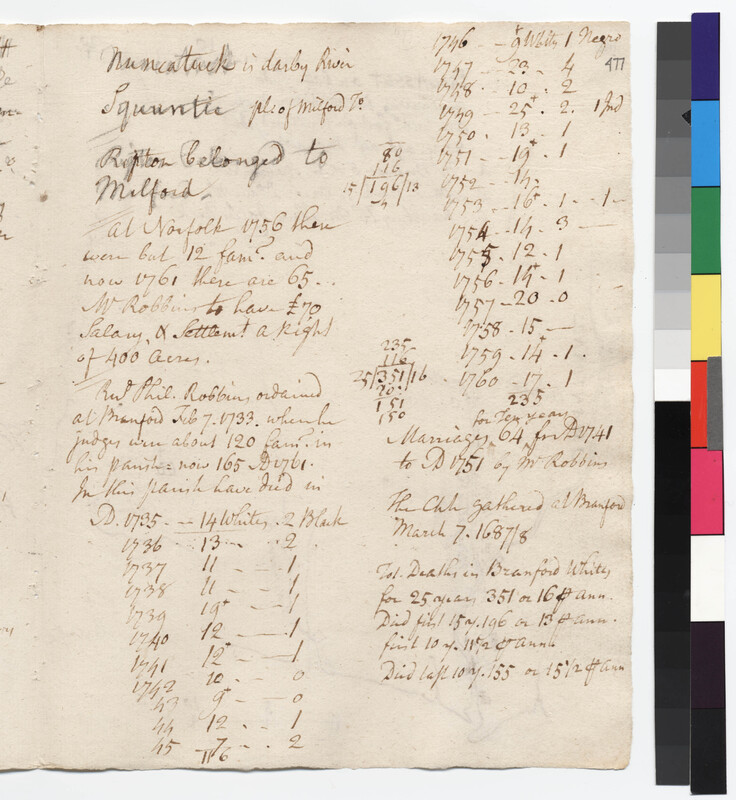 Nuncattuck is darby River
Squuntic pt. of Milford To.
Ripton belonged to
Milford.
At Norfolk 1756 there
were but 12 fam.s and
now 1761 there are 65..
Mr Robbins to have £70
Salary, & Settlemt a Right
of 400 Acres.
Revd Phil. Robbins ordained
at Branford Feb 7. 1733. when he
judges were about 120 fam.s in
his parish: now 165 AD 1761.
In this parish have died in
D. 1735 -- 14 Whites. 2 Black
1736 - 13 - . 2
1737 11 - - 1
1738 11 - - 1
1739 19+ - - 1
1740 12 - - 1
1741 12+ - - 1
1742 10 - - 0
43 9+ - 0
44 12 - 1
45 - 7 - . 2
116
80
116
15/196/13
4
235
116
25/351/16
151
150
1746 - - 9+ White 1 Negro
477
1747 - - 4
1748 - 10 . 2
1749 - 25+ . 2. 1 Ind
1750. 13 - 1
1751 - 19+ . 1
1752 - 14.
1753 - 16+ . 1 - - 1 -
1754 - 14 - 3 -
1755 - 12 . 1
1756 - 14+ - 1
1757 - 20 . 0
1758 - 15 -
1759 - 14+ - 1.
1760 - 17 . 1
235
for Ten years
Marriages 64 fr AD 1741
to AD 1751 by Mr Robbins
The Chh gathered at Branford
March 7. 1687/8
Tot. Deaths in Branford Whites
for 25 years 351 or 16 ⅌ ann.
Died first 15 y. 196 or 13 ⅌ ann.
first 10 y. 11 1/2 ⅌ ann.
Died last 10 y. 155 or 15 1/2 ⅌ ann